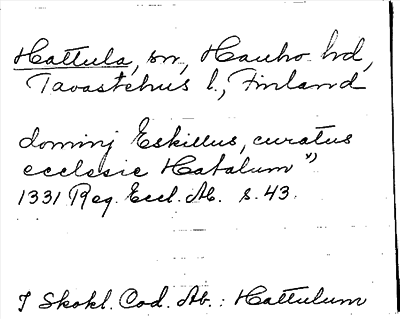 Hattula, sn, Hauho hd,
Tavastehus l., Finland
dominj Eskillus, curatus
ecclesie Hatalum ")
1331 Reg. Eccl. Ab. s. 43.
I Skokl. Cod. Ab.: Hattulum